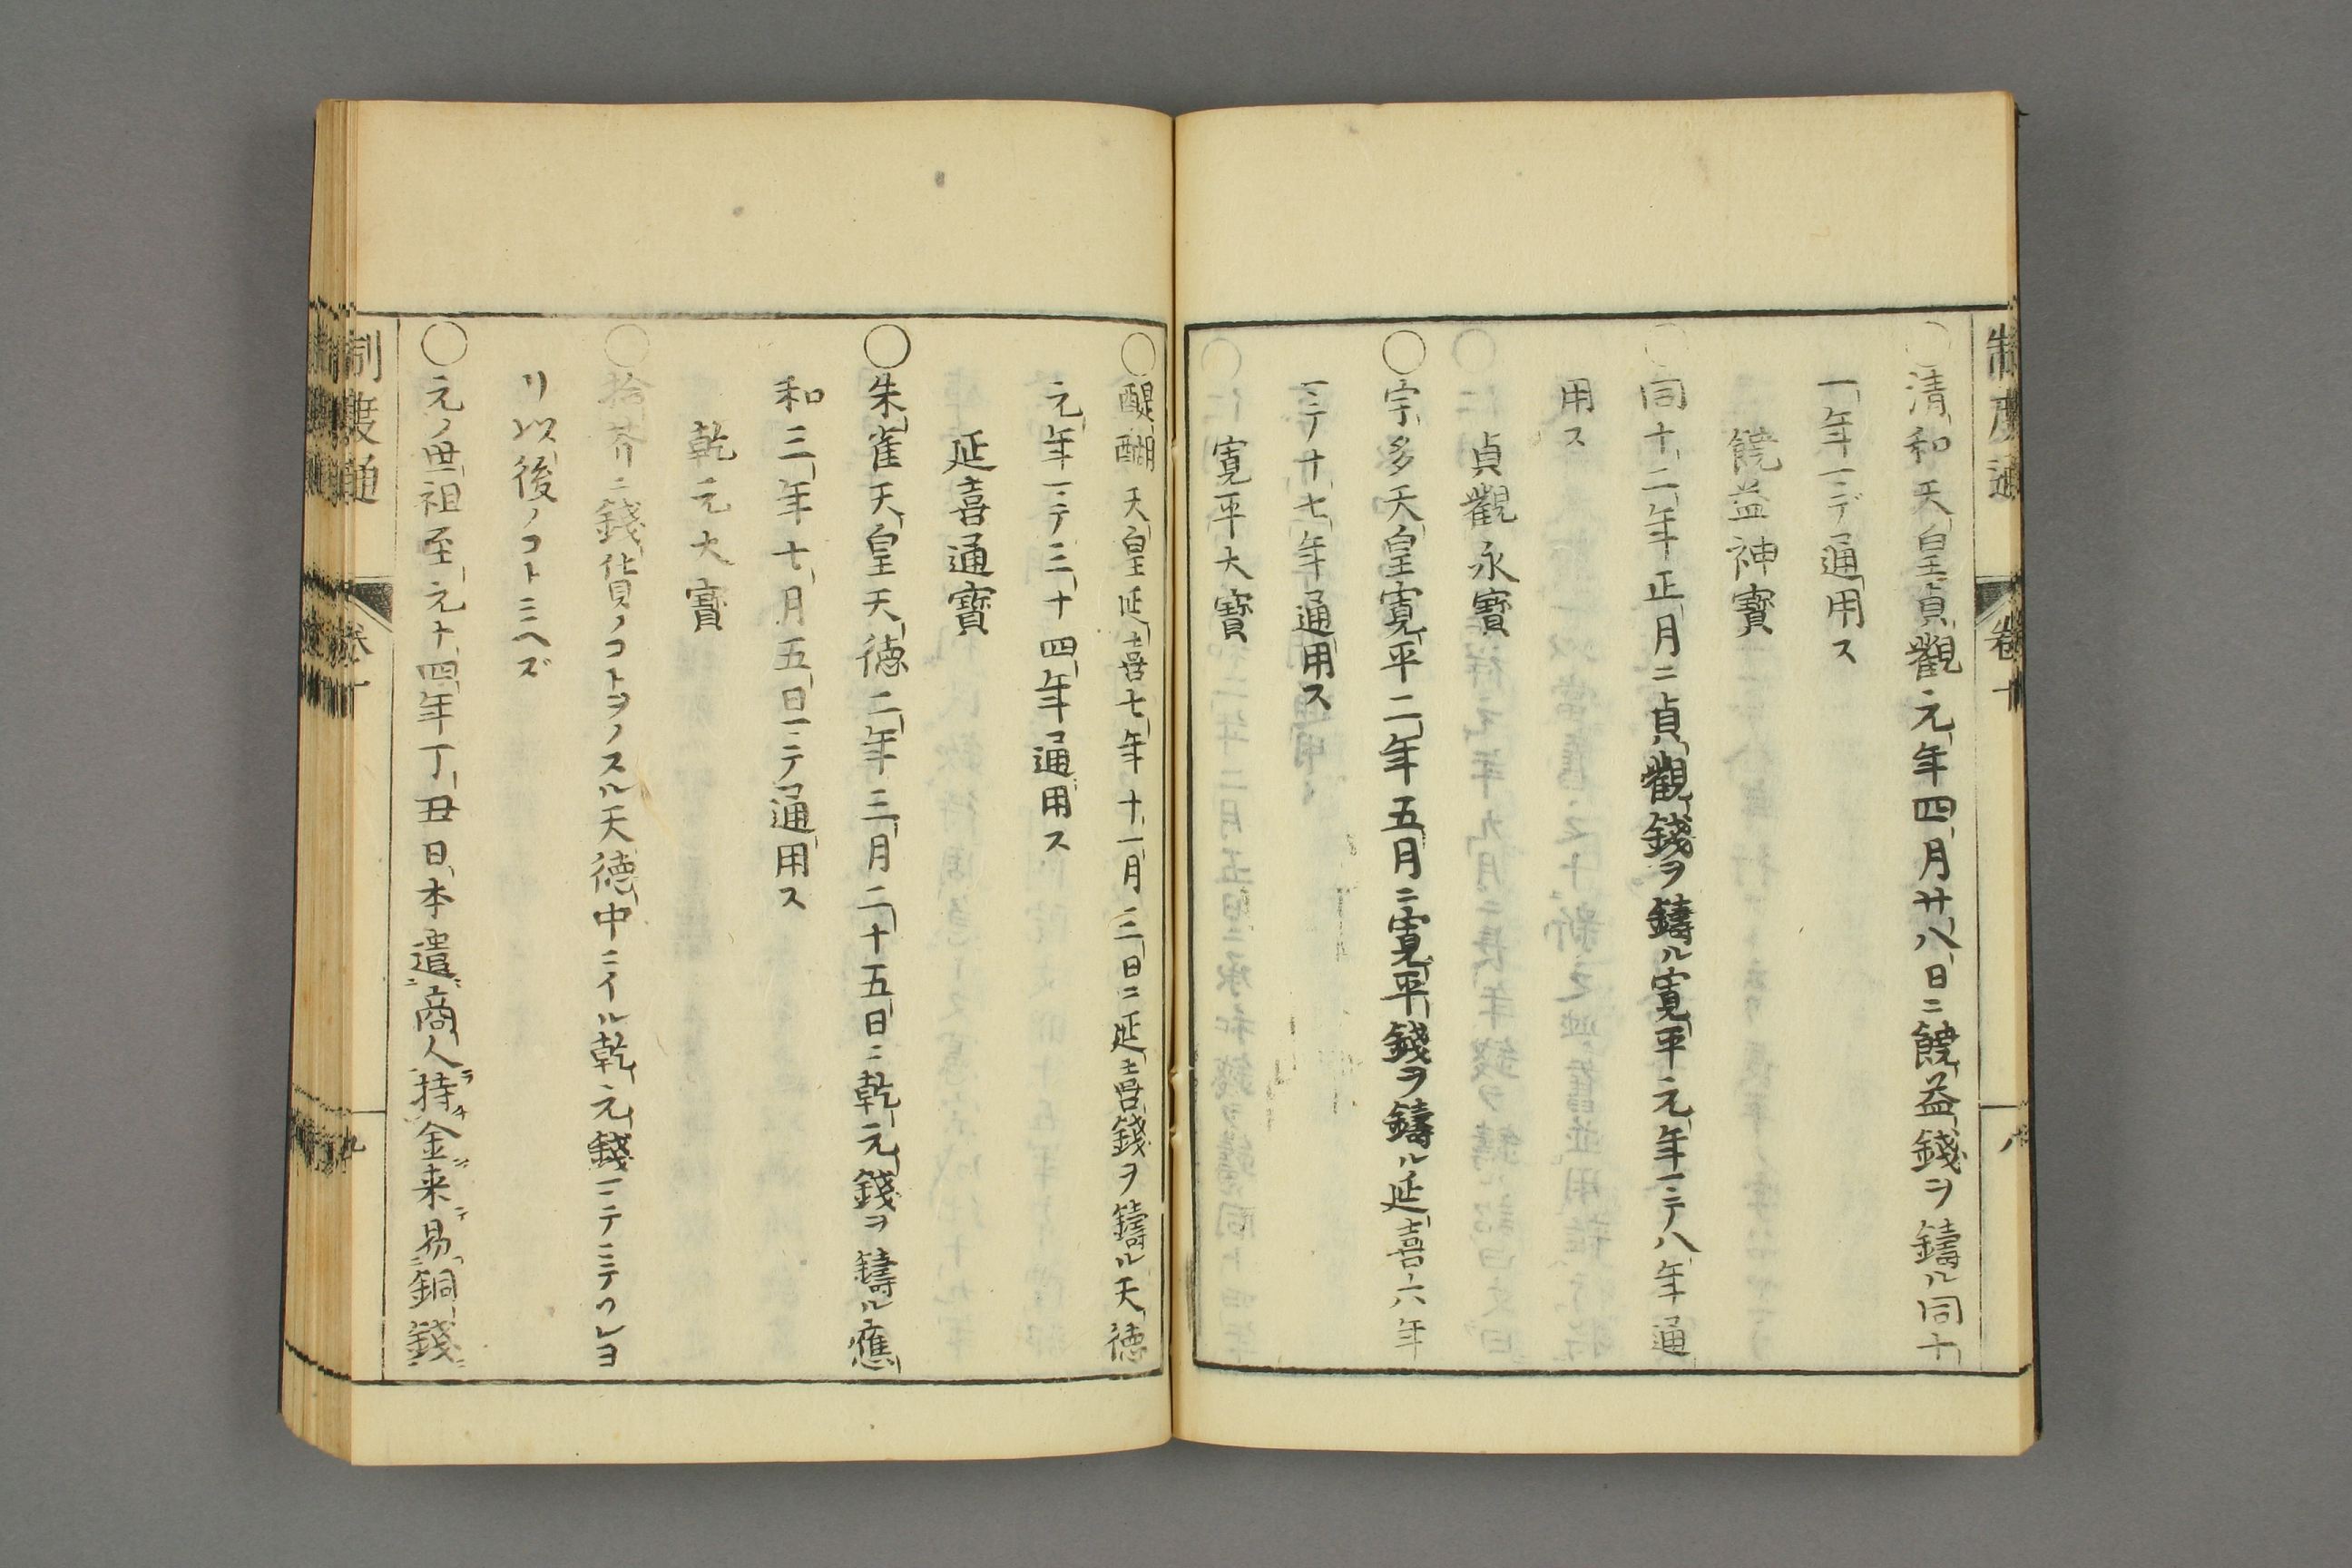 制度通 卷十 八
○清和天皇貞觀元年四月廿八日ニ饒益錢ヲ鑄ル同十
一年ニテ通用ス
饒益神寶
○同十二年正月ニ貞觀錢ヲ鑄ル寛平元年ニテ八年通
用ス
貞觀永寶
○宇多天皇寛平二年五月ニ寛平錢ヲ鑄ル延喜六年
ニテ十七年通用ス
寛平大寶
○醍醐天皇延喜七年十一月三日ニ延喜錢ヲ鑄ル天徳
元年ニテ三十四年通用ス
延喜通寶
○朱雀天皇天徳二年三月二十五日ニ乾元錢ヲ鑄ル應
和三年七月五日ニテ通用ス
乾元大寶
○拾芥ニ錢貨ノコトヲノスル天徳中ニイル乾元錢ニテミテワレヨ
リ以後ノコトミヘズ
○元ノ世祖至元十四年丁丑日本遣商人持金来易銅錢
制度通 卷十 九